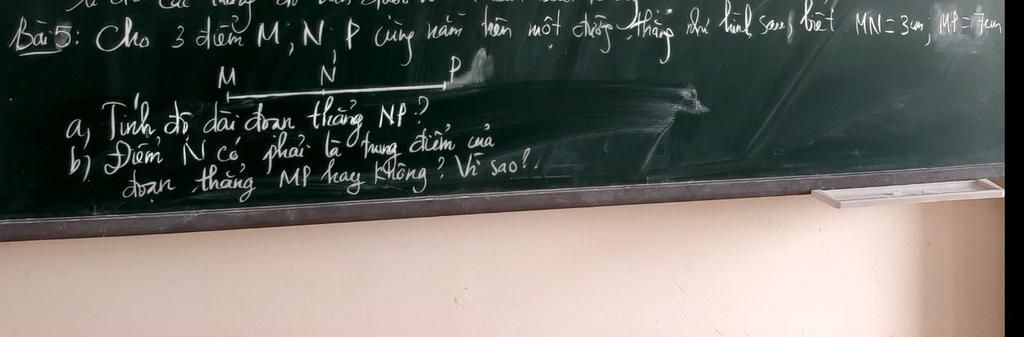 Bài 5: Cho 3 điểm M, N, P cùng nằm trên một đường thẳng như hình sau, biết MN = 3cm; MP = 7cm
M N P
a, Tính độ dài đoạn thẳng NP?
b, Điểm N có phải là trung điểm của
đoạn thẳng MP hay không? Vì sao?